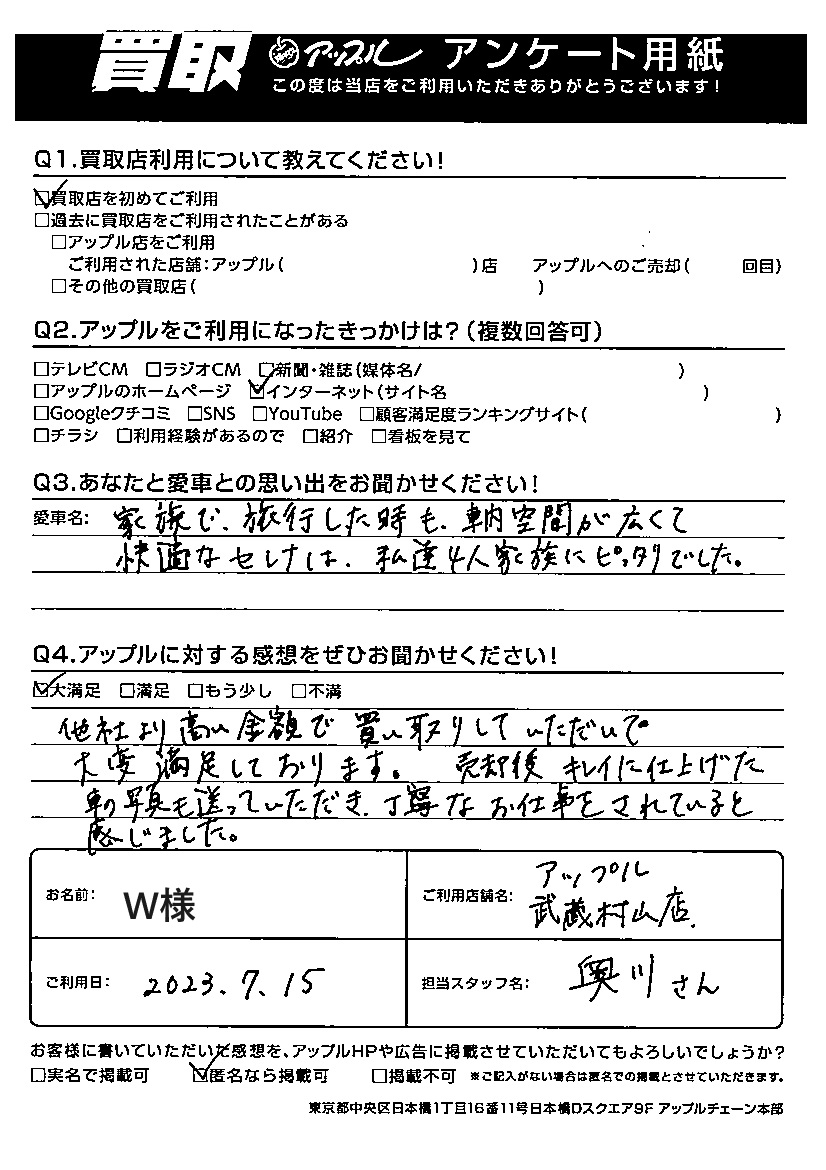 買取 アップル アンケート用紙
この度は当店をご利用いただきありがとうございます!
Q1.買取店利用について教えてください!
☑買取店を初めてご利用
□過去に買取店をご利用されたことがある
□アップル店をご利用
ご利用された店舗:アップル( )店 アップルへのご売却( 回目)
□その他の買取店( )
Q2.アップルをご利用になったきっかけは?(複数回答可)
□テレビCM □ラジオCM □新聞・雑誌(媒体名/ )
□アップルのホームページ ☑インターネット(サイト名 )
□Googleクチコミ □SNS □YouTube □顧客満足度ランキングサイト( )
□チラシ □利用経験があるので □紹介 □看板を見て
Q3.あなたと愛車との思い出をお聞かせください!
愛車名: 家族で、旅行した時も、車内空間が広くて
快適なセレナは、私達4人家族にピッタリでした。
Q4.アップルに対する感想をぜひお聞かせください!
☑大満足 □満足 □もう少し □不満
他社より高い金額で買い取りしていただいて
大変満足しております。 売却後キレイに仕上げた
車の写真も送っていただき、丁寧なお仕事をされていると
感じました。
お名前: W様 ご利用店舗名: アップル
武蔵村山店
ご利用日: 2023.7.15 担当スタッフ名: 奥川さん
お客様に書いていただいた感想を、アップルHPや広告に掲載させていただいてもよろしいでしょうか?
□実名で掲載可 ☑匿名なら掲載可 □掲載不可 ※ご記入がない場合は匿名での掲載とさせていただきます。
東京都中央区日本橋1丁目16番11号日本橋Dスクエア9F アップルチェーン本部